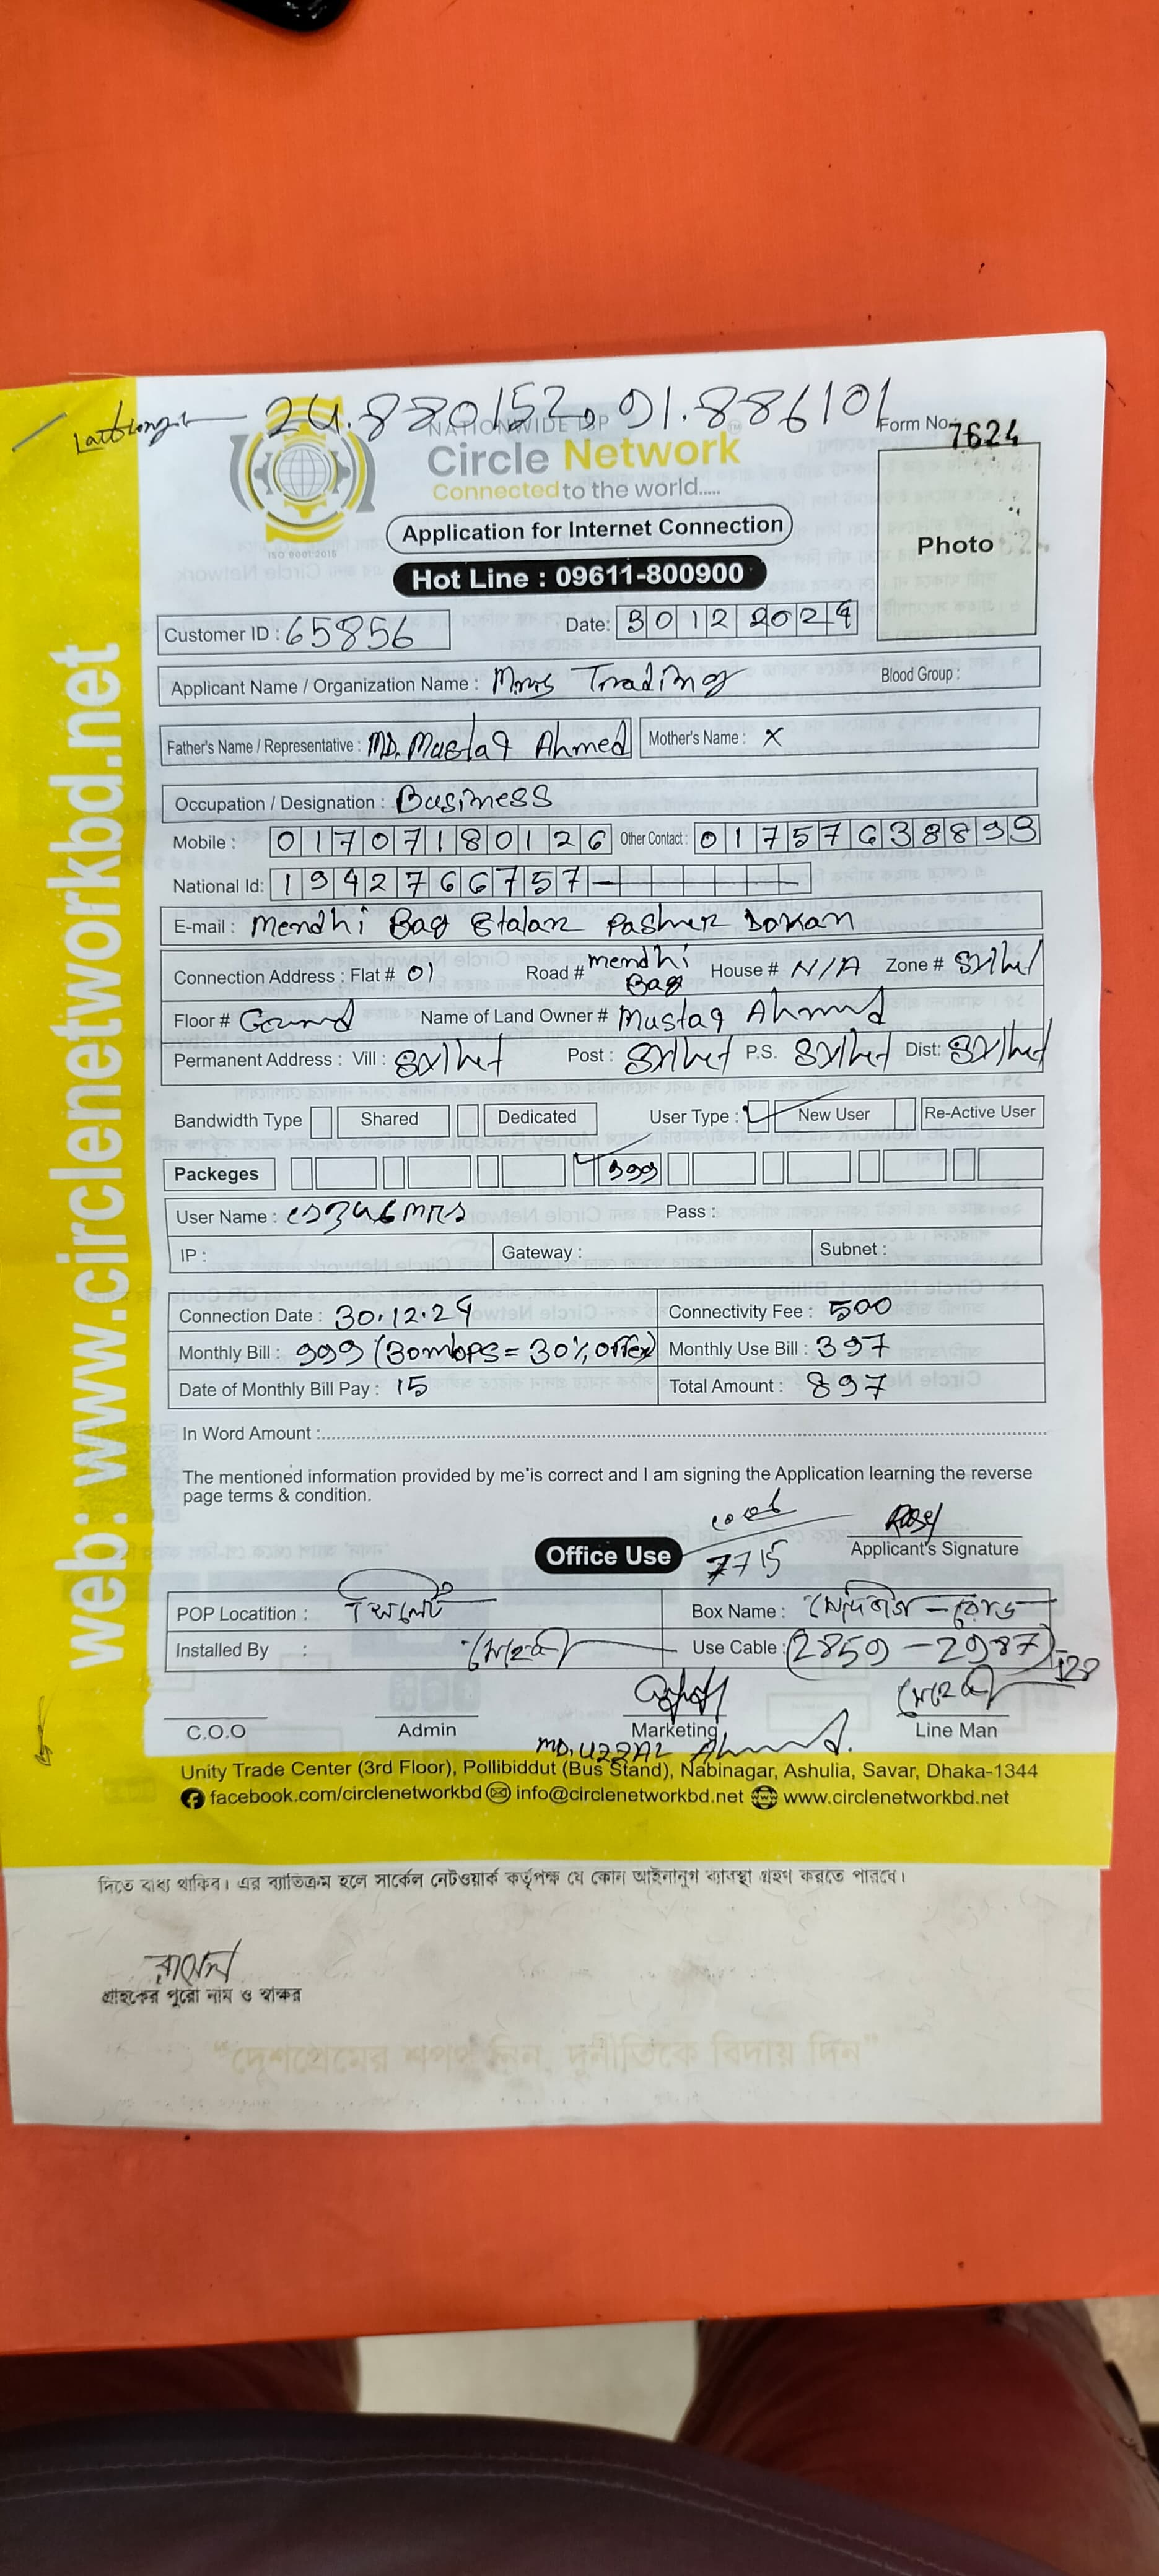 24.880152, 91.886101
Form No: 7624
NATIONWIDE ISP
Circle Network
Connected to the world.....
ISO 9001:2015
Application for Internet Connection
Photo
Hot Line : 09611-800900
Customer ID : 65856 Date: 30122024
Applicant Name / Organization Name : Mrrs Trading Blood Group :
Father's Name / Representative : MD. Mustaq Ahmed Mother's Name : X
Occupation / Designation : Business
Mobile : 01707180126 Other Contact : 01757638899
National Id: 1942766757
E-mail : Mendhi Bag Pasher Dokan
Connection Address : Flat # 01 Road # mendhi Bag House # N/A Zone # Sylhet
Floor # Gound Name of Land Owner # Mustaq Ahmed
Permanent Address : Vill : Sylhet Post : Sylhet P.S. Sylhet Dist: Sylhet
Bandwidth Type Shared Dedicated User Type : New User Re-Active User
Packeges 999
User Name : Pass :
IP : Gateway : Subnet :
Connection Date : 30.12.24 Connectivity Fee : 500
Monthly Bill : 999 (30mbps = 30% offer) Monthly Use Bill : 397
Date of Monthly Bill Pay : 15 Total Amount : 897
In Word Amount :
The mentioned information provided by me is correct and I am signing the Application learning the reverse
page terms & condition.
Office Use 7715 Applicant's Signature
POP Locatition : Box Name :
Installed By : মেহেদী Use Cable : (2859 - 2987) = 128
মেহেদী
C.O.O Admin Marketing Line Man
MD. UZZAL Ahmed.
Unity Trade Center (3rd Floor), Pollibiddut (Bus Stand), Nabinagar, Ashulia, Savar, Dhaka-1344
facebook.com/circlenetworkbd info@circlenetworkbd.net www.circlenetworkbd.net
web: www.circlenetworkbd.net
দিতে বাধ্য থাকিব। এর ব্যতিক্রম হলে সার্কেল নেটওয়ার্ক কর্তৃপক্ষ যে কোন আইনানুগ ব্যবস্থা গ্রহণ করতে পারবে।
রাসেল
গ্রাহকের পুরো নাম ও স্বাক্ষর
“দেশপ্রেমের শপথ নিন, দুর্নীতিকে বিদায় দিন”